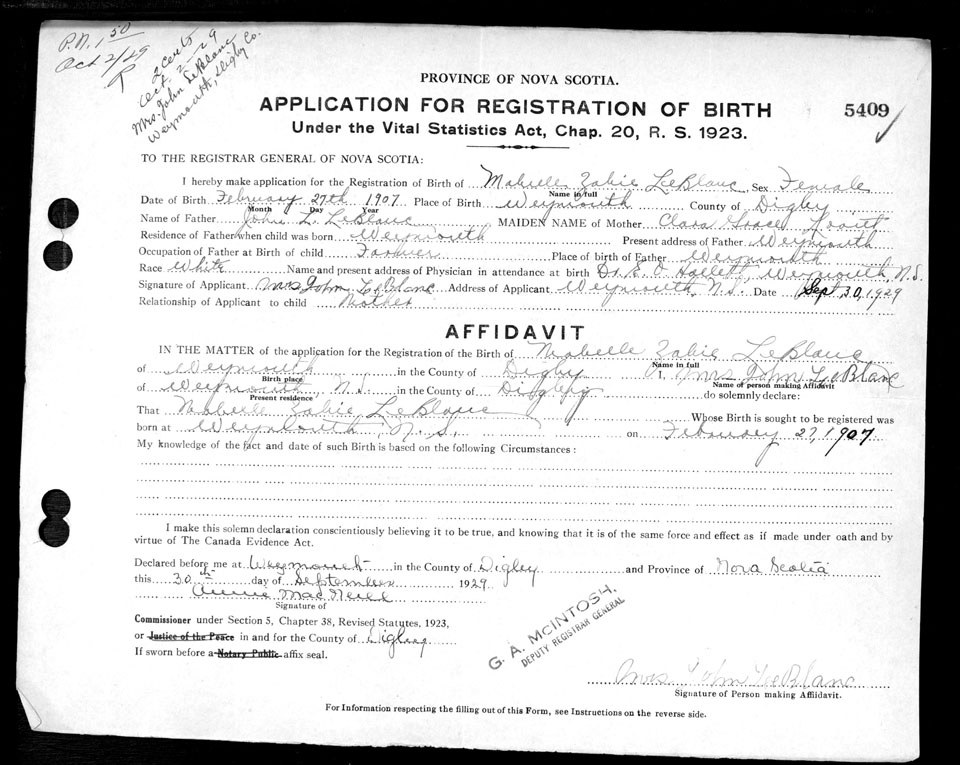 P.N. 1 50
Oct 2/29
2 Cents
Oct. 2-29
Mrs. John LeBlanc
Weymouth, Digby Co.
PROVINCE OF NOVA SCOTIA.
APPLICATION FOR REGISTRATION OF BIRTH
5409
Under the Vital Statistics Act, Chap. 20, R. S. 1923.
TO THE REGISTRAR GENERAL OF NOVA SCOTIA:
I hereby make application for the Registration of Birth of Mabelle Zabie LeBlanc, Sex Female
Name in full
Date of Birth February 27th 1907 Place of Birth Weymouth County of Digby
Month Day Year
Name of Father John L. LeBlanc MAIDEN NAME of Mother Clara Grace
Residence of Father when child was born Weymouth Present address of Father Weymouth
Occupation of Father at Birth of child Place of birth of Father Weymouth
Race White Name and present address of Physician in attendance at birth Dr. E. O. Hallett, Weymouth, N.S.
Signature of Applicant Mrs John LeBlanc Address of Applicant Weymouth, N.S. Date Sept 30, 1929
Relationship of Applicant to child Mother
AFFIDAVIT
IN THE MATTER of the application for the Registration of the Birth of Mabelle Zabie LeBlanc
Name in full
of Weymouth in the County of Digby I, Mrs John LeBlanc
Birth place Name of person making Affidavit
of Weymouth, N.S. in the County of Digby do solemnly declare:
Present residence
That Mabelle Zabie LeBlanc Whose Birth is sought to be registered was
born at Weymouth, N.S. on February 27, 1907
My knowledge of the fact and date of such Birth is based on the following Circumstances :
I make this solemn declaration conscientiously believing it to be true, and knowing that it is of the same force and effect as if made under oath and by
virtue of The Canada Evidence Act.
Declared before me at Weymouth in the County of Digby and Province of Nova Scotia
this 30th day of September 1929
Annie MacNeill
Signature of
Commissioner under Section 5, Chapter 38, Revised Statutes, 1923,
or Justice of the Peace in and for the County of Digby
If sworn before a Notary Public affix seal.
G. A. McINTOSH.
DEPUTY REGISTRAR GENERAL
Mrs John LeBlanc
Signature of Person making Affidavit.
For Information respecting the filling out of this Form, see Instructions on the reverse side.